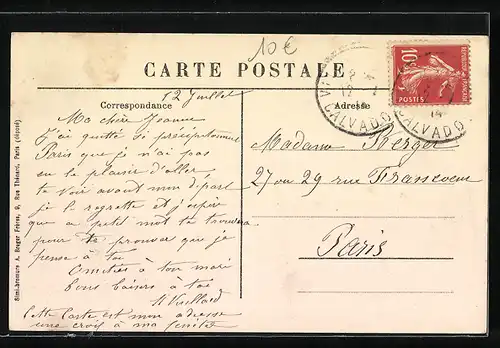 10€
CARTE POSTALE
Correspondance
Adresse
12 Juillet
Ma chère Jeanne
J'ai quitté si précipitamment
Paris que je n'ai pas
eu le plaisir d'aller
te voir avant mon départ
je le regrette et j'espère
que ce petit mot te trouvera
pour te prouver que je
pense à toi
Amitiés à ton mari
Bons baisers à toi
Cette Carte est mon adresse
une croix à ma fenêtre
Madame Berger
27 ou 29 rue Francoeur
Paris
10c
REPUBLIQUE FRANÇAISE
POSTES
CALVADOS
CALVADOS
14
Simi-bromure A. Breger Frères, 9, Rue Thénard, Paris (déposé)